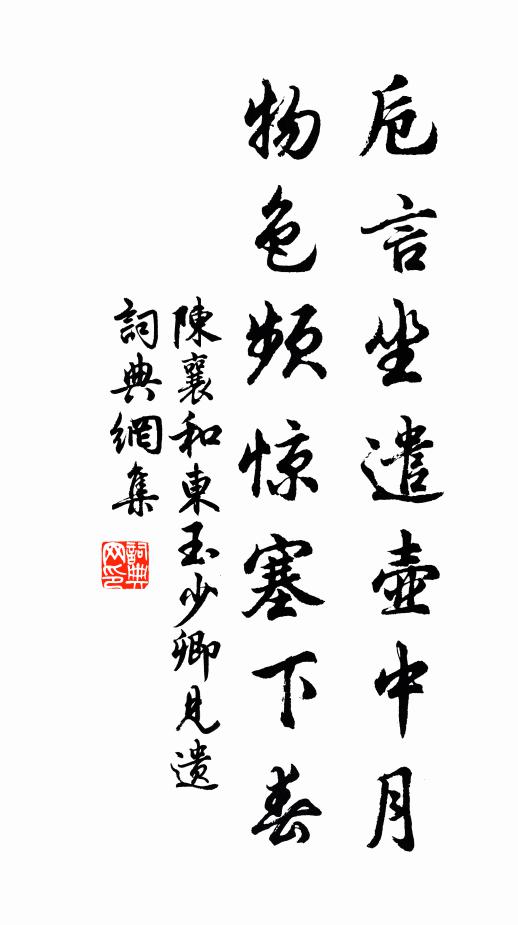 卮言坐遣壶中月
物色频惊塞下春
陳襄和東玉少卿見遺
詞典網集
詞典网印